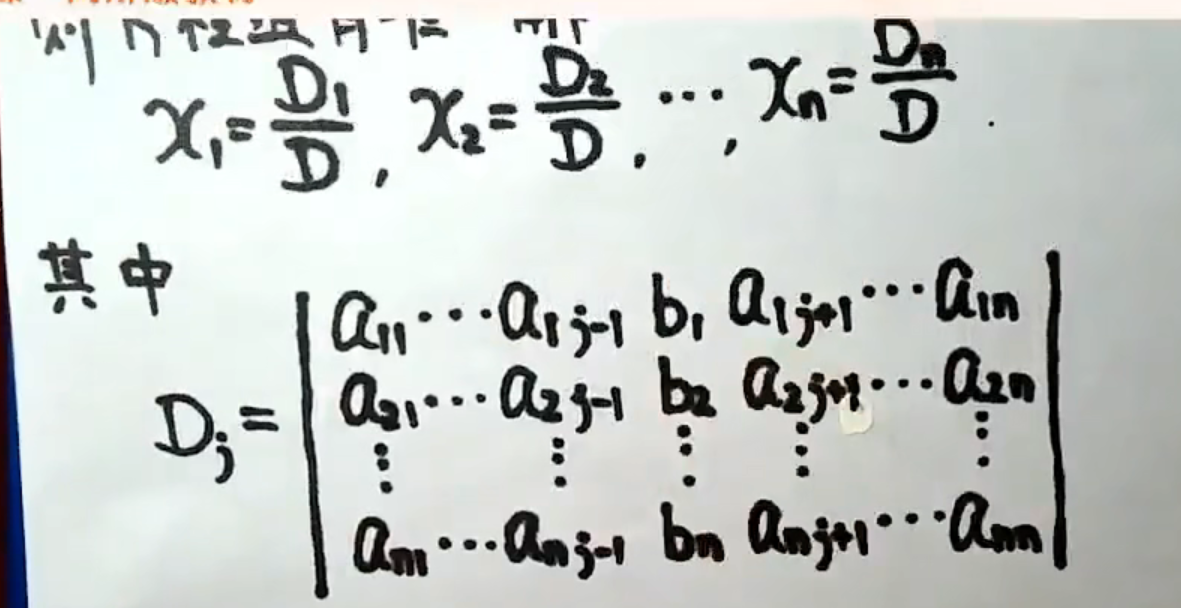 x₁=D₁/D, x₂=D₂/D, ⋯, xₙ=Dₙ/D.
其中
Dⱼ= | a₁₁⋯a₁ⱼ₋₁ b₁ a₁ⱼ₊₁⋯a₁ₙ |
| a₂₁⋯a₂ⱼ₋₁ b₂ a₂ⱼ₊₁⋯a₂ₙ |
| ⋮ ⋮ ⋮ ⋮ ⋮ |
| aₙ₁⋯aₙⱼ₋₁ bₙ aₙⱼ₊₁⋯aₙₙ |